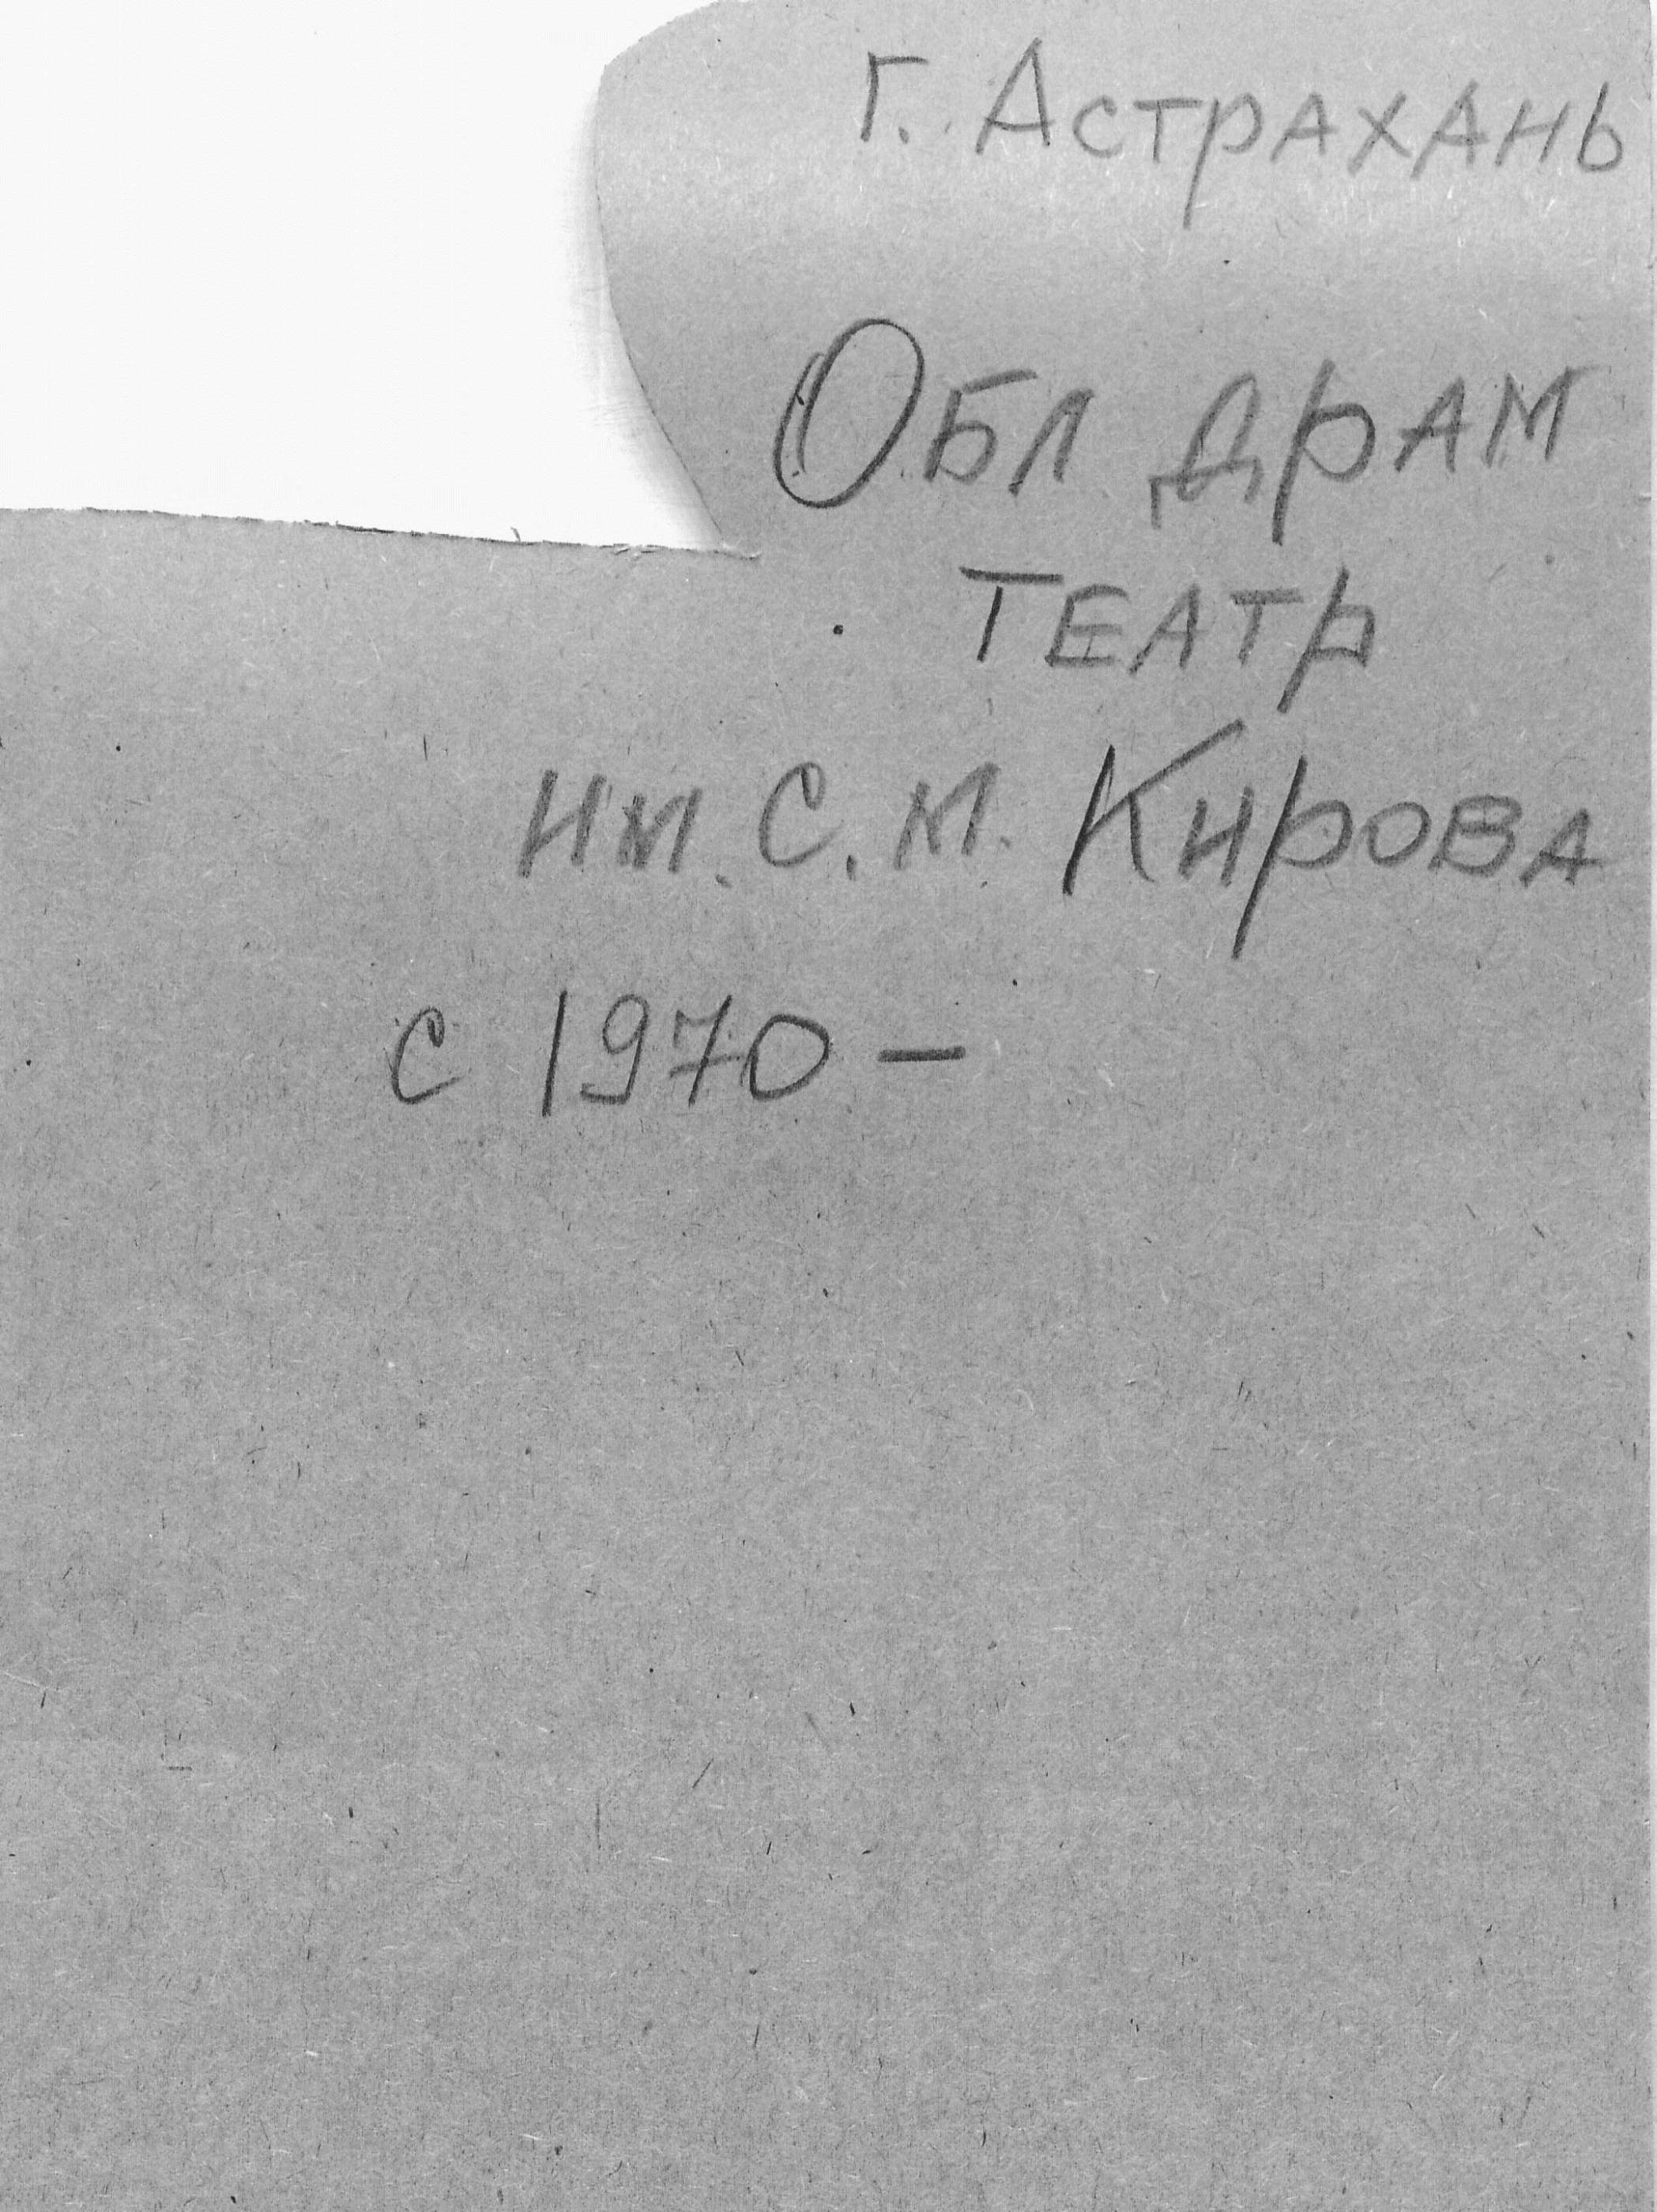 г. Астрахань
Обл драм
театр
им. С. М. Кирова
с 1970 –